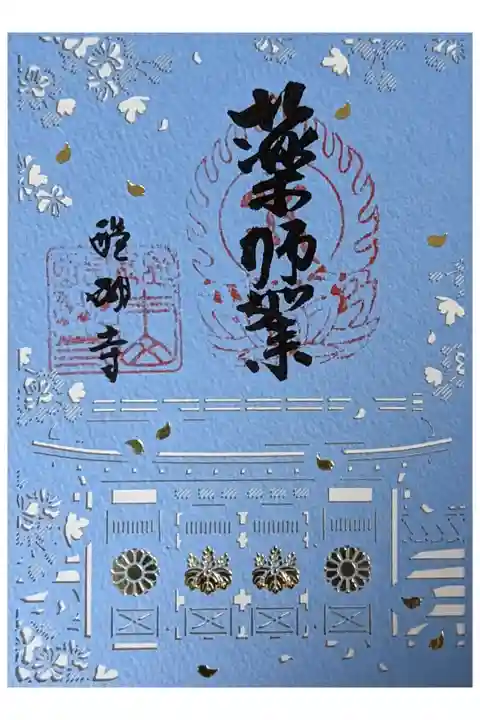 薬師堂
醍醐寺